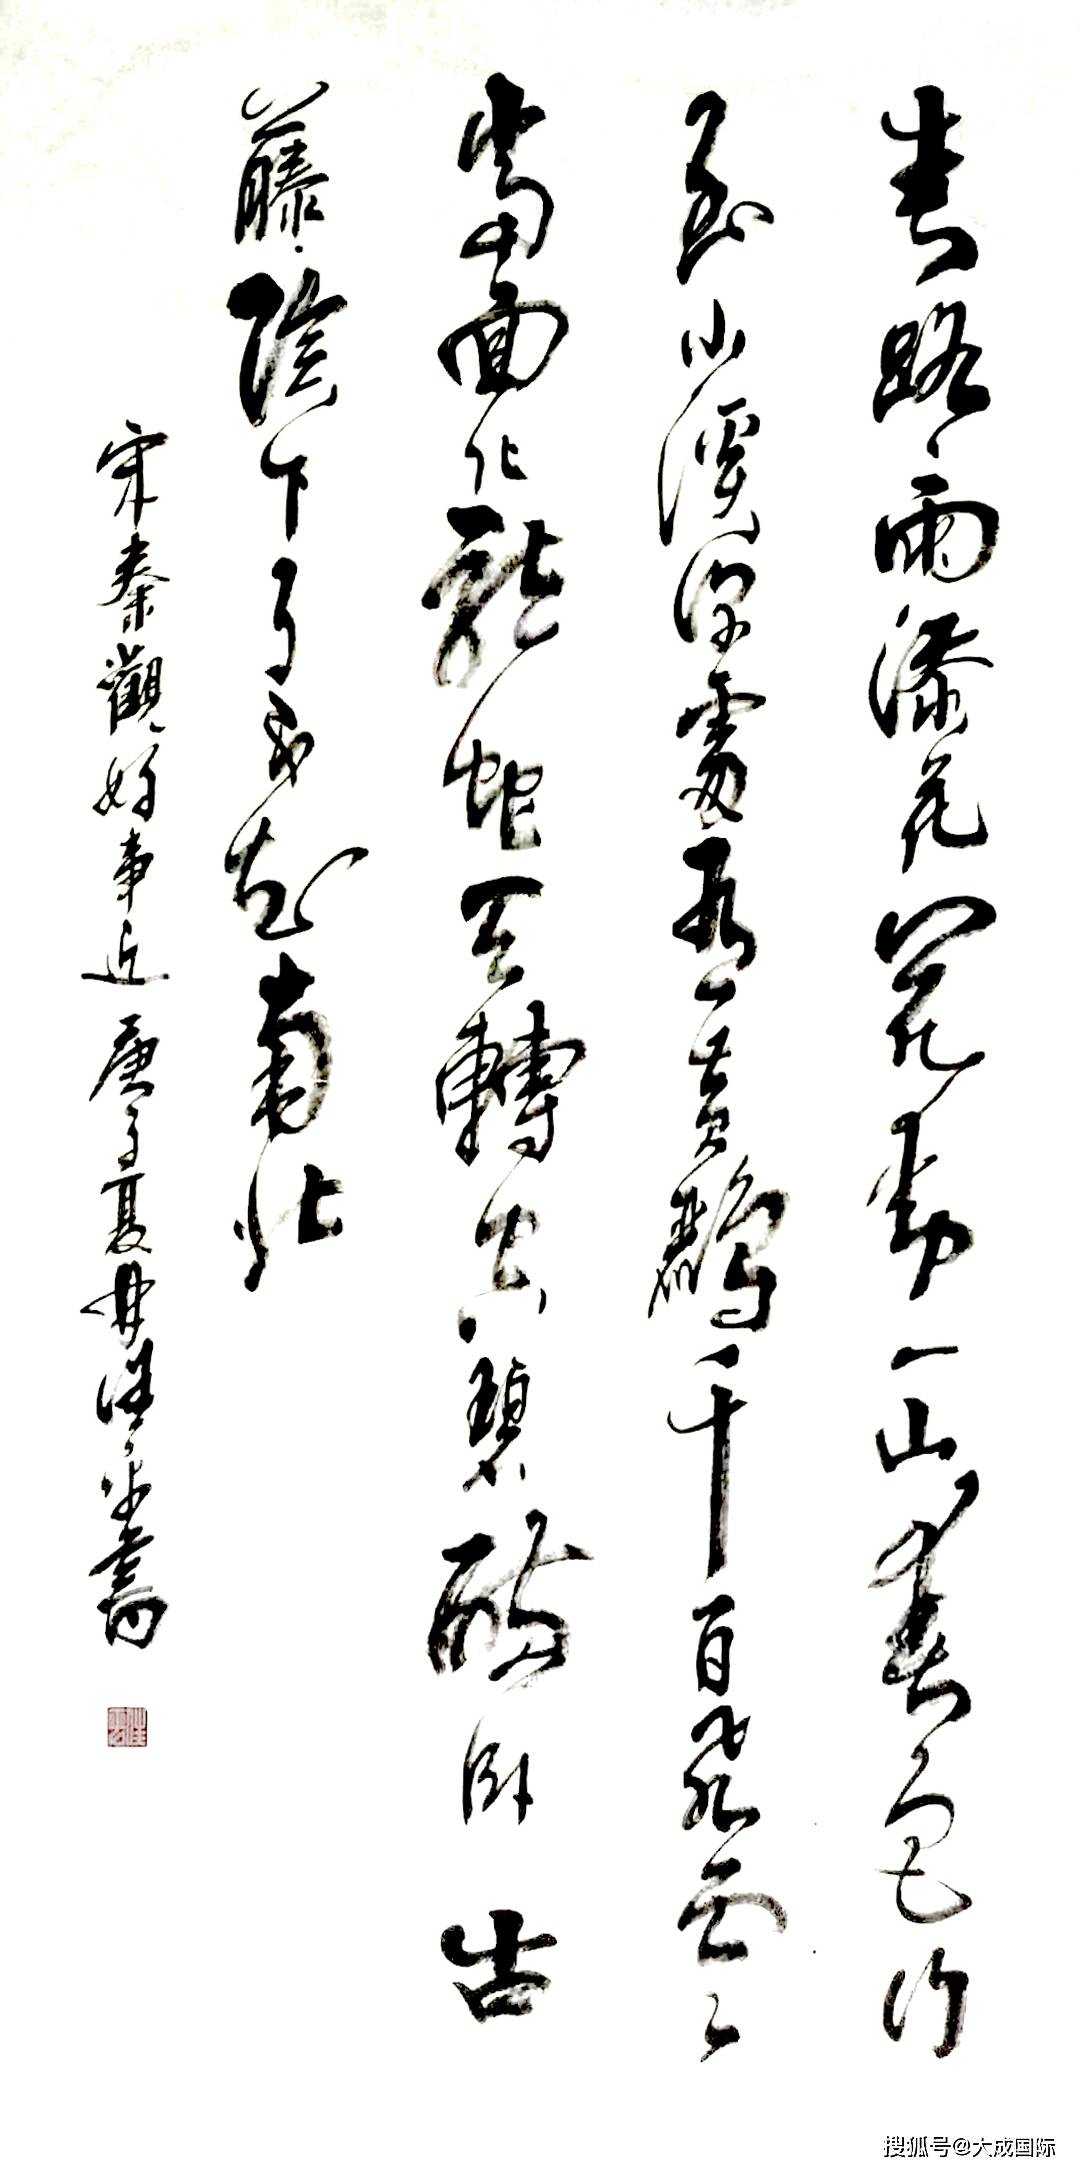 春路雨添花花動一山春色行
到小溪深處有黃鸝千百飛雲
當面化龍蛇夭轉空碧醉臥古
藤陰下了不知南北
宋秦觀好事近 庚子夏書
搜狐号@大成国际